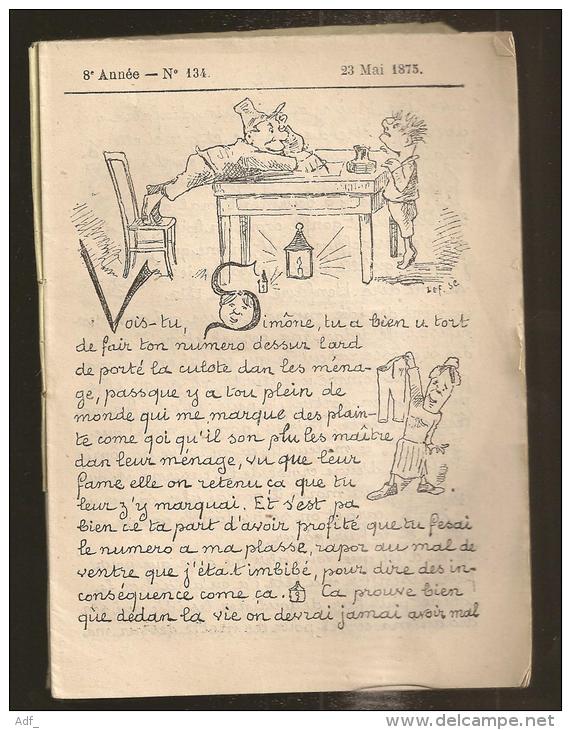 8e Année — No 134.
23 Mai 1875.
Lef. Sc
Vois-tu, Simône, tu a bien u tort
de fair ton numero dessur lard
de porté la culote dan les ména-
ge, passque y a tou plein de
monde qui me marque des plain-
te come qoi qu'il son plu les maître
dan leur ménage, vu que leur
fame elle on retenu ça que tu
leur z'y marquai. Et s'est pa
bien de ta part d'avoir profité que tu fesai
le numero a ma plasse, rapor au mal de
ventre que j'était imbibé, pour dire des in-
conséquence come ça. Ca prouve bien
que dedan la vie on devrai jamai avoir mal
Adf_
www.delcampe.net